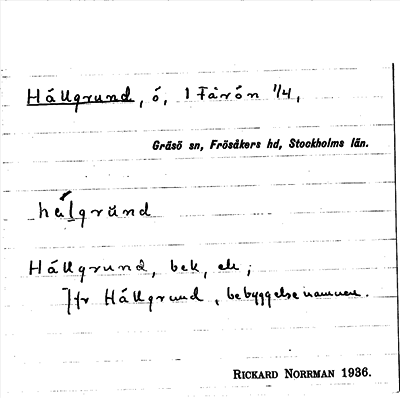 Hållgrund, ö, 1 Fårön 1/4,
Gräsö sn, Frösåkers hd, Stockholms län.
hålgrŭnd
Hållgrund, bek, ek;
Jfr Hållgrund, bebyggelsenamnen.
RICKARD NORRMAN 1936.